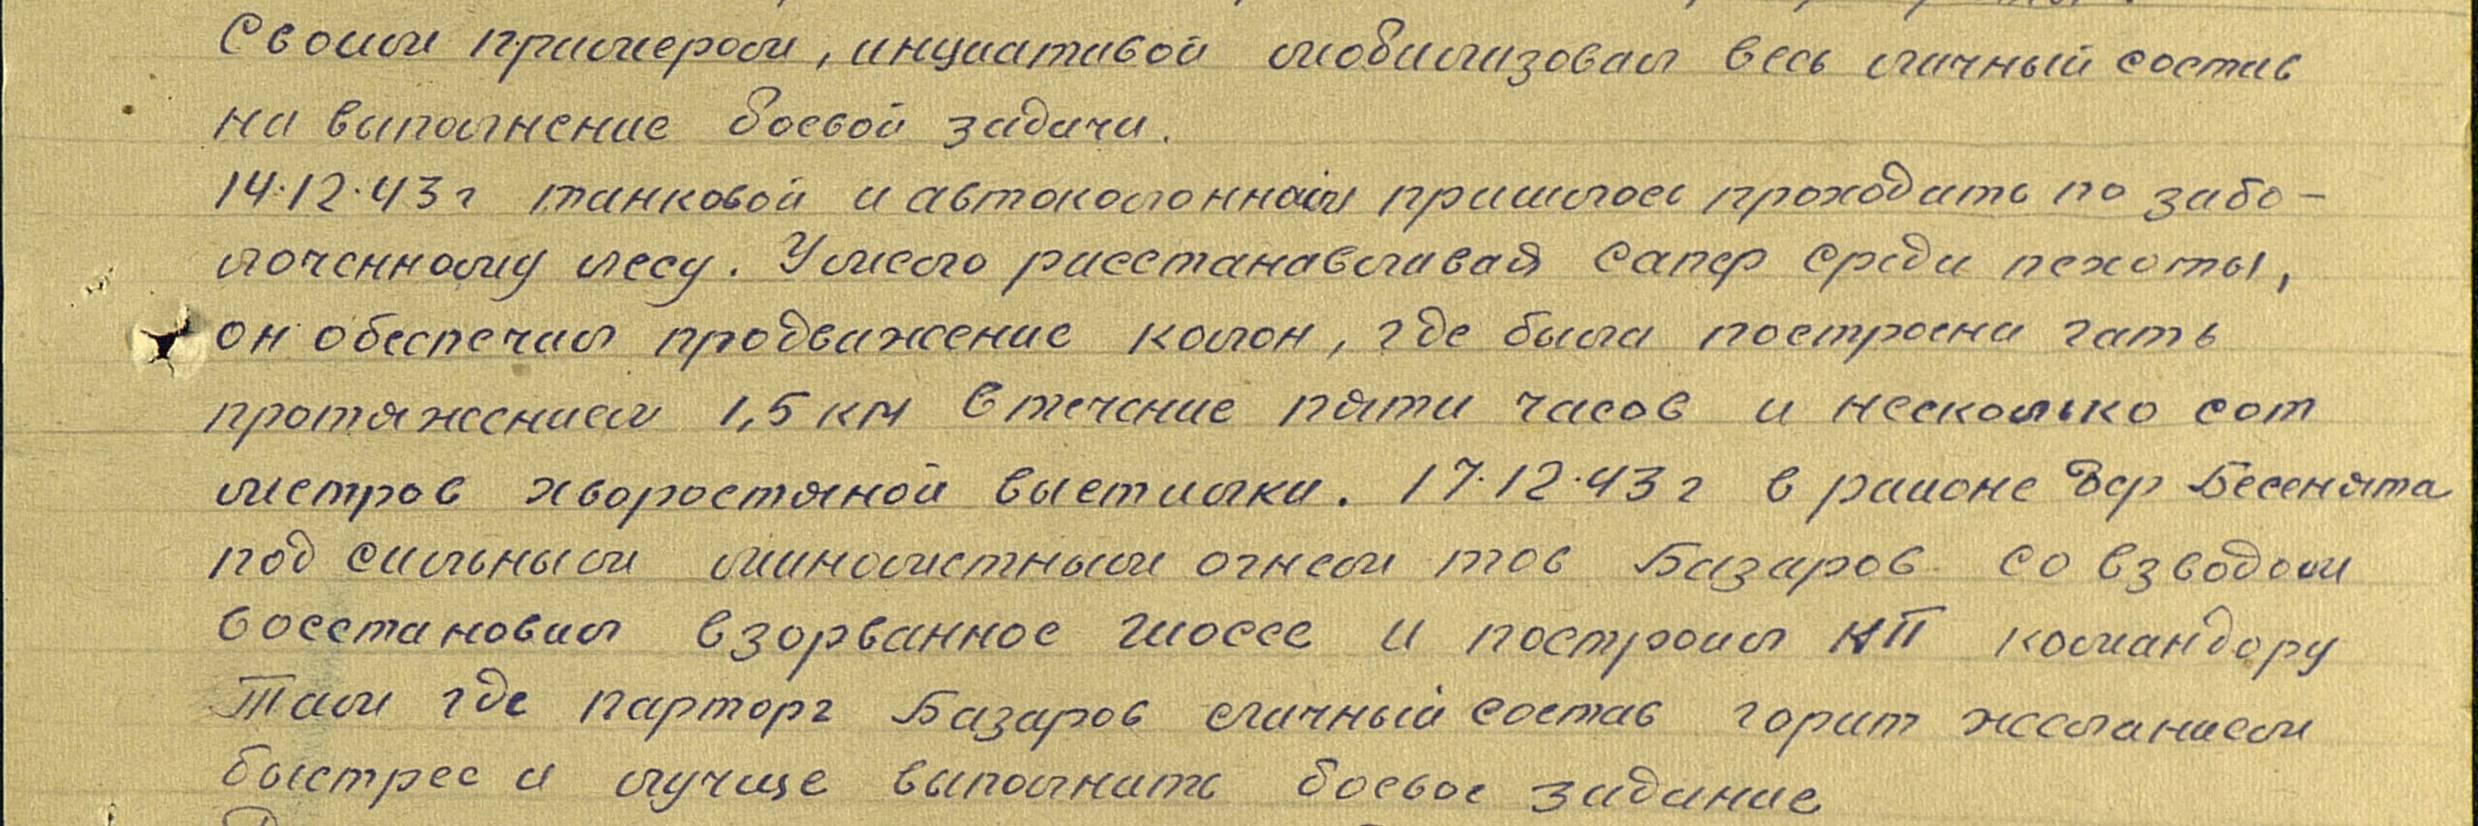 Своим примером, инциативой мобилизовал весь личный состав
на выполнение боевой задачи.
14.12.43 г танковой и автоколоннам пришлось проходить по забо-
лоченному лесу. Умело расстанавливая сапер среди пехоты,
он обеспечил продвижение колон, где была построена гать
протяжением 1,5 км в течение пяти часов и несколько сот
метров хворостяной выстилки. 17.12.43 г в районе дер Бесенята
под сильным минометным огнем тов Базаров со взводом
восстановил взорванное шоссе и построил НП командору
Там где парторг Базаров личный состав горит желанием
быстрее и лучще выполнить боевое задание